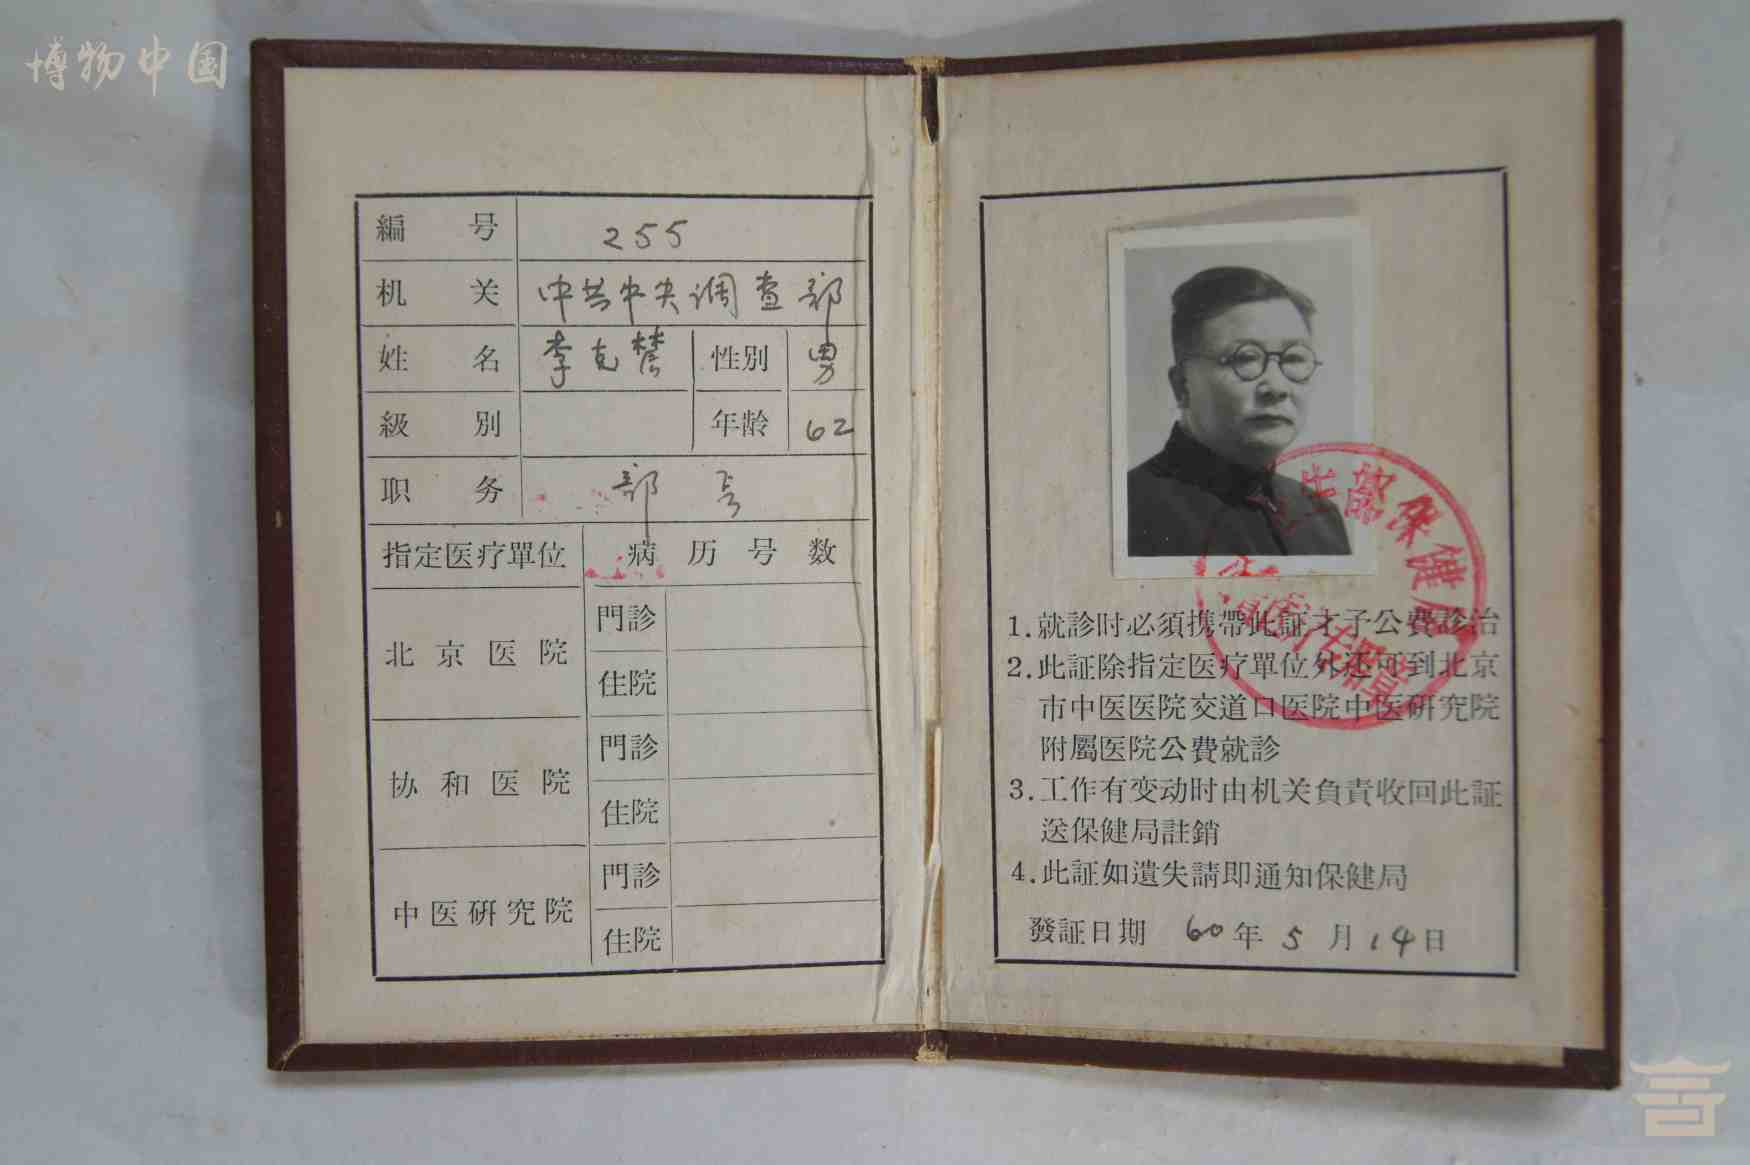 博物中国
編号 255
机关 中共中央调查部
姓名 李克農 性別 男
級別 年龄 62
职务 部長
指定医疗單位 病历号数
北京医院 門診
住院
协和医院 門診
住院
中医研究院 門診
住院
保健局
1.就診时必須携帶此証才予公費診治
2.此証除指定医疗單位外还可到北京
市中医医院交道口医院中医研究院
附屬医院公費就診
3.工作有变动时由机关負責收回此証
送保健局註銷
4.此証如遺失請即通知保健局
發証日期 60年5月14日